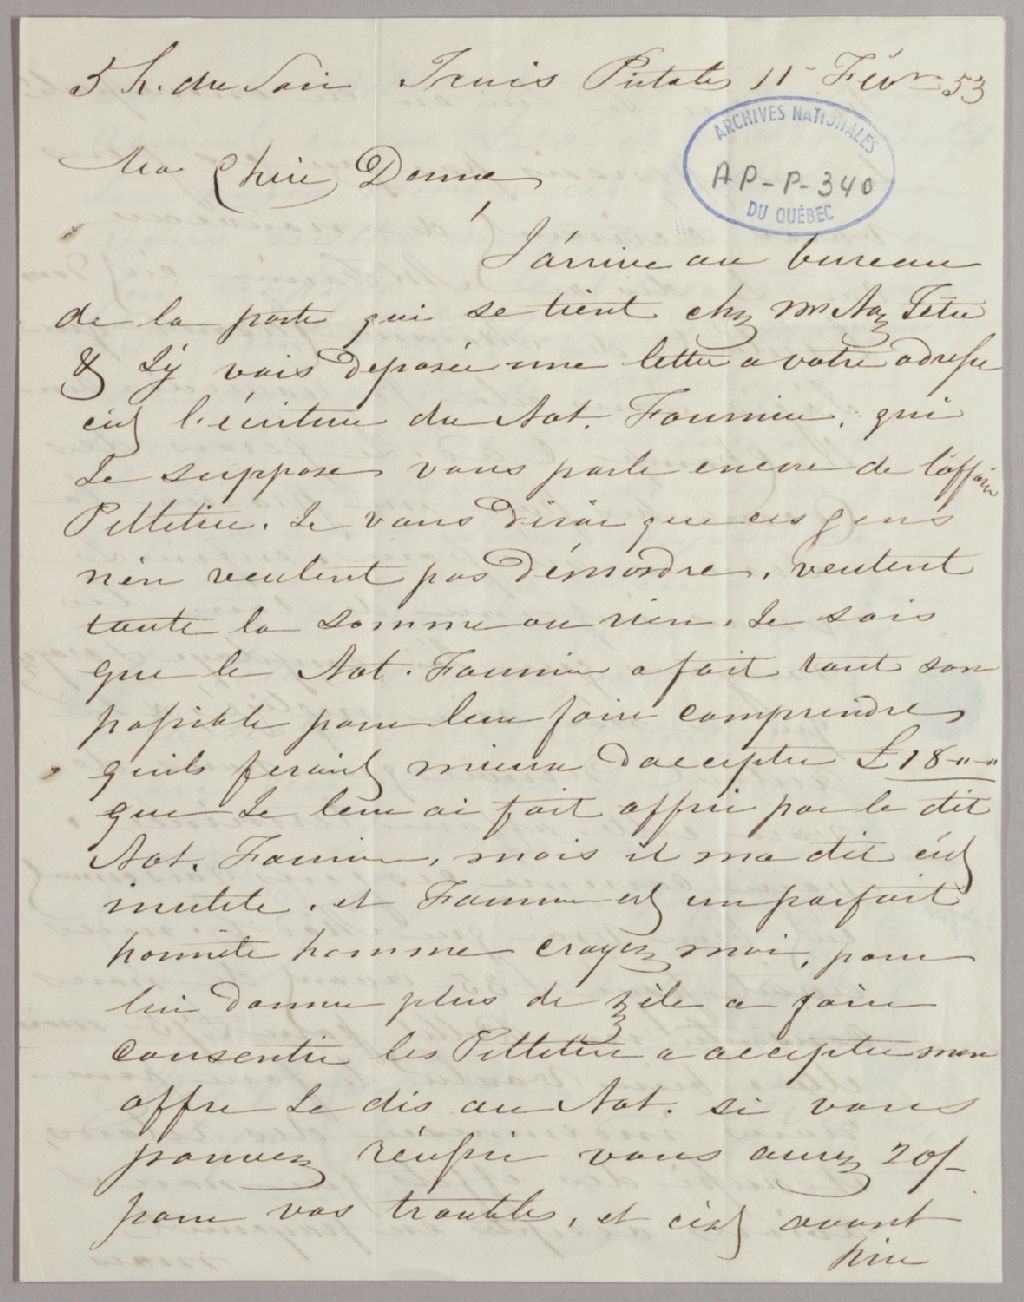 5 h. du Soir Trois Pistoles 11 Févr 53
ARCHIVES NATIONALES
AP-P-340
DU QUÉBEC
Ma Chère Dame
J'arrive au bureau
de la poste qui se tient chez Mr Naz Tétu
& J'y vois deposée une lettre a votre adresse
c'est l'écriture du Not. Fournier, qui
Je suppose vous parle encore de l'affaire
Pelletier. Je vous dirai que ces gens
n'en veulent pas démordre, veulent
toute la somme ou rien. Je sais
que le Not. Fournier a fait tout son
possible pour leur faire comprendre
quils feraient mieux d'accepter £18 " "
que Je leur ai fait offrir par le dit
Not. Fournier, mais il ma dit c'est
inutile. et Fournier est un parfait
honnête homme croyez moi, pour
lui donner plus de zèle a faire
consentir les Pelletier a accepter mon
offre Je dis au Not. si vous
pouvez réussir vous aurez 20/-
pour vos troubles, et c'est avant
hier